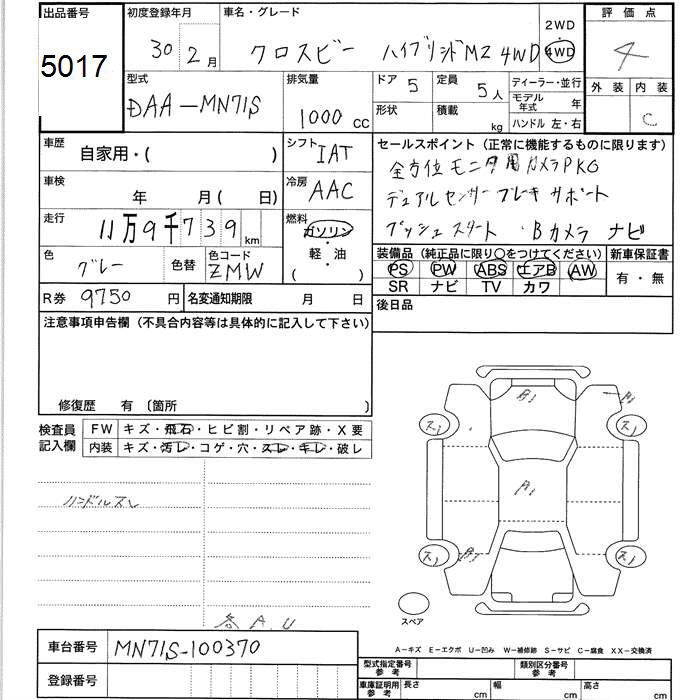 出品番号 5017
初度登録年月 30年 2月
車名・グレード クロスビー ハイブリッドMZ 4WD
2WD・4WD
評価点 4
型式 DAA-MN71S
排気量 1000 cc
ドア 5 定員 5人
形状 積載 kg
ディーラー・並行
モデル年式 年
ハンドル 左・右
外装 内装 C
車歴 自家用・( )
シフト IAT
車検 年 月( 日)
冷房 AAC
走行 11万9千739 km
燃料 ガソリン・軽油・( )
色 グレー 色替 色コード ZMW
R券 9750円 名変通知期限 月 日
セールスポイント (正常に機能するものに限ります)
全方位モニタ用カメラPKG
デュアルセンサーブレーキサポート
プッシュスタート・Bカメラ ナビ
装備品 (純正品に限り○をつけてください) 新車保証書
PS PW ABS エアB AW 有・無
SR ナビ TV カワ
後日品
注意事項申告欄 (不具合内容等は具体的に記入して下さい)
修復歴 有 〔箇所 〕
検査員記入欄
FW キズ・飛石・ヒビ割・リペア跡・X要
内装 キズ・汚レ・コゲ・穴・スレ・キレ・破レ
ハンドルスレ
各A.U
A1
A1
スレ スレ
A1
スレ スレ
スペア
A-キズ E-エクボ U-凹み W-補修跡 S-サビ C-腐食 XX-交換済
車台番号 MN71S-100370
登録番号
型式指定番号 参考 類別区分番号 参考
車庫証明用 参考 長さ cm 幅 cm 高さ cm